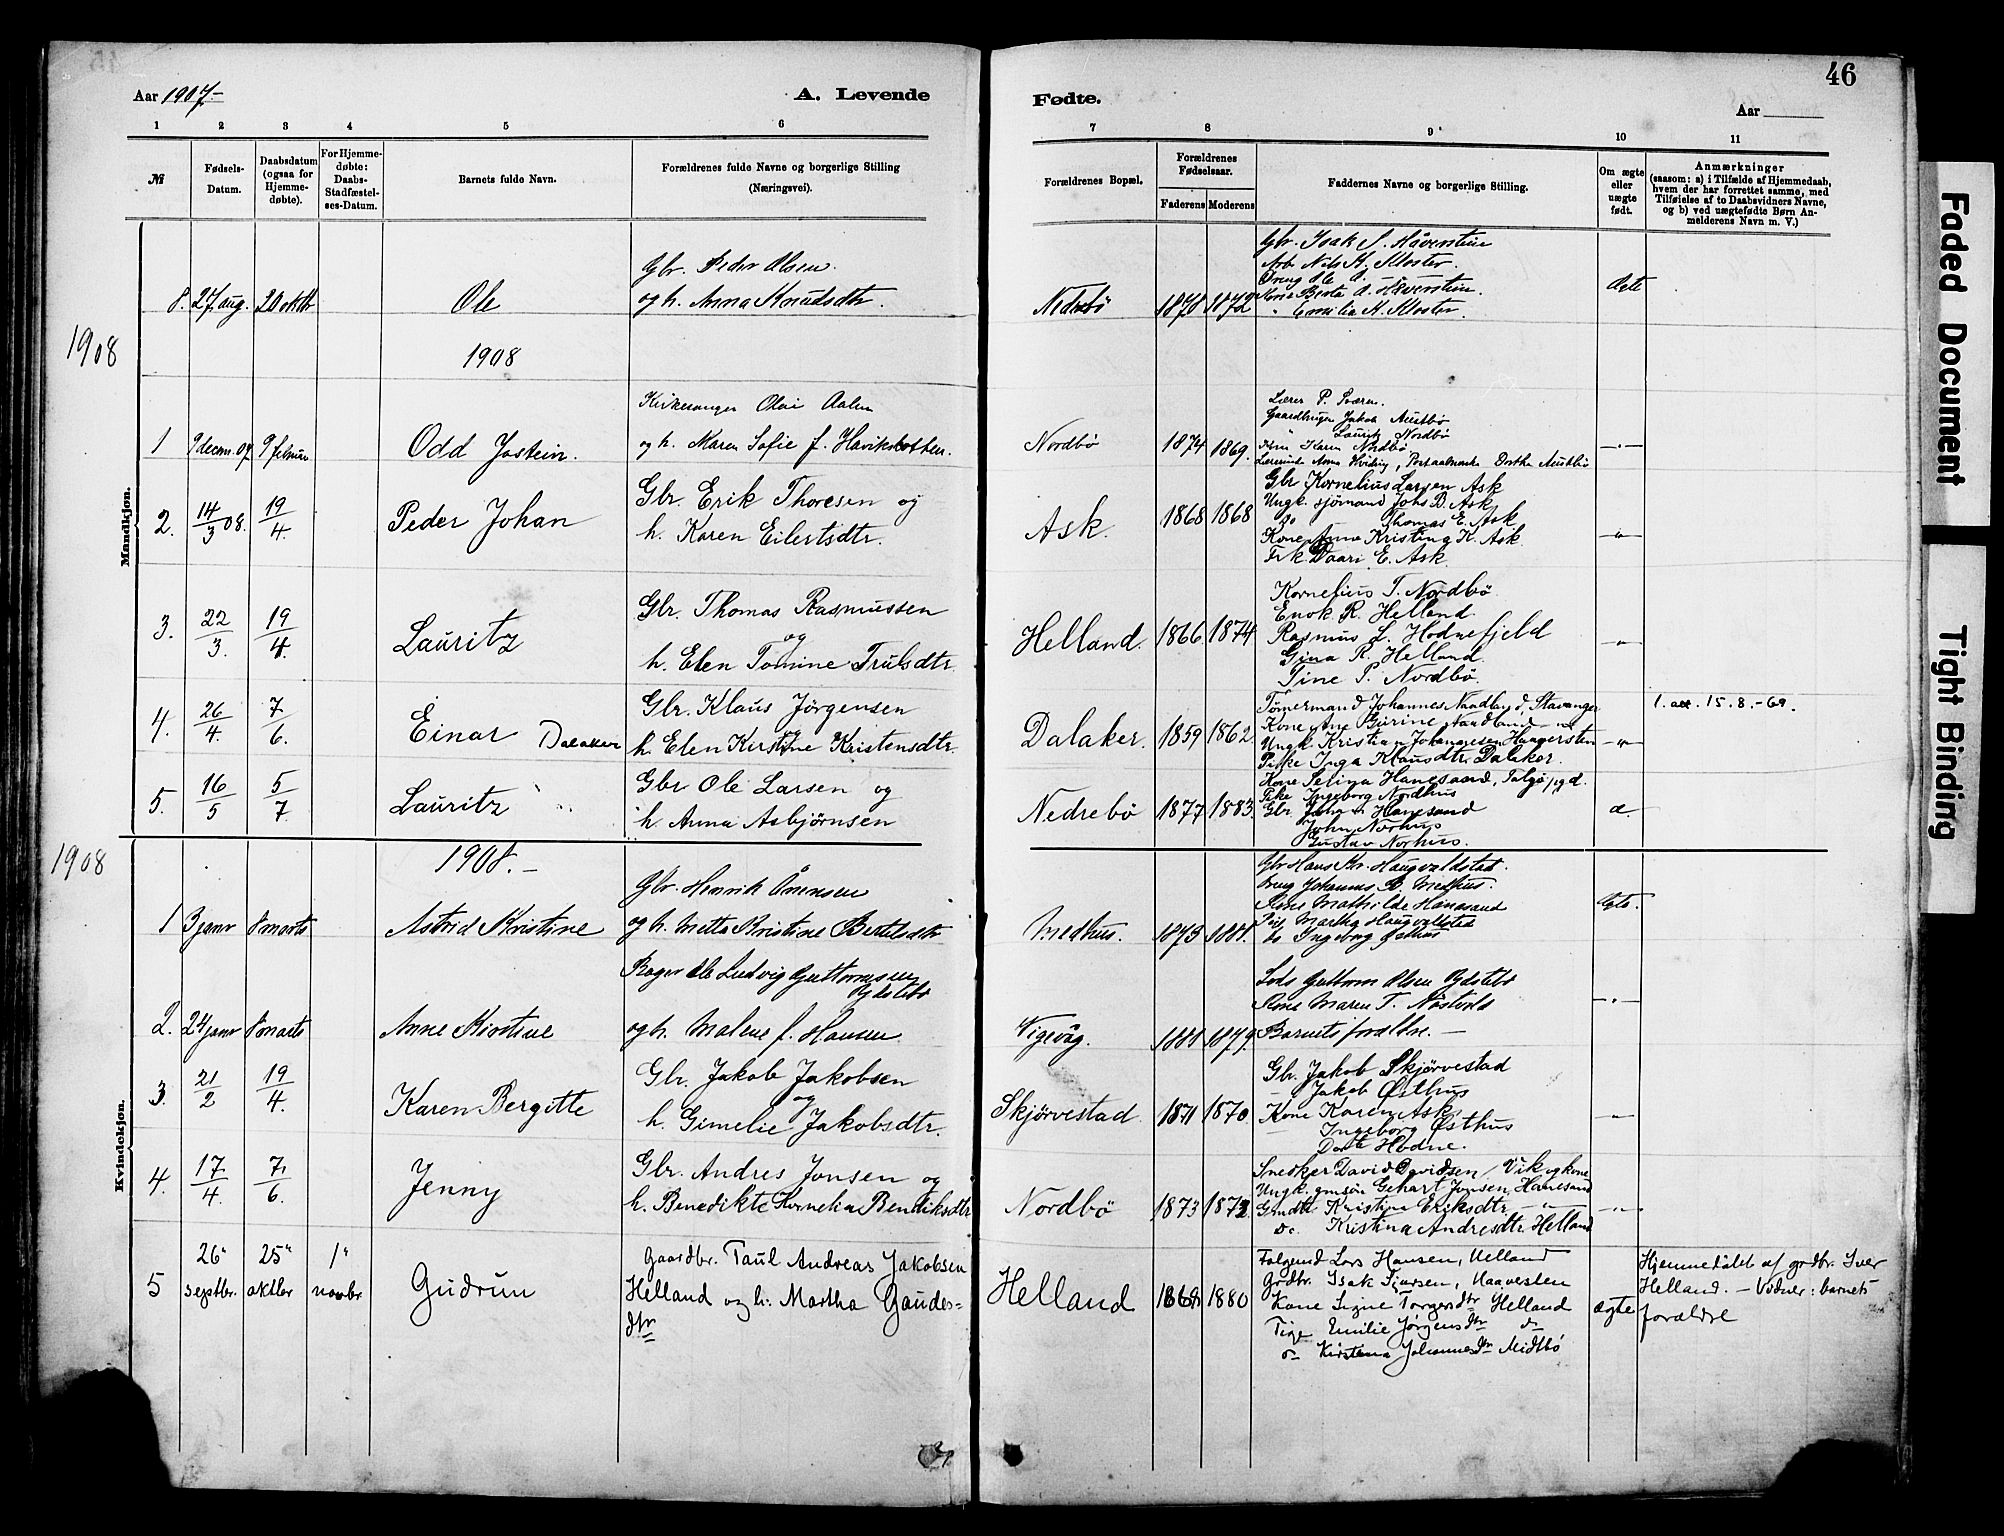 46
Aar 1907.-
A. Levende
Fødte.
Aar
1 2 3 4 5 6 7 8 9 10 11
№
Fødsels-
Datum.
Daabsdatum
(ogsaa for
Hjemme-
døbte).
For Hjemme-
døbte:
Daabs-
Stadfæstel-
ses-Datum.
Barnets fulde Navn.
Forældrenes fulde Navne og borgerlige Stilling
(Næringsvei).
Forældrenes Bopæl.
Forældrenes
Fødselsaar.
Faderens Moderens
Faddernes Navne og borgerlige Stilling.
Om ægte
eller
uægte
født.
Anmærkninger
(saasom: a) i Tilfælde af Hjemmedaab,
hvem der har forrettet samme, med
Tilføielse af to Daabsvidners Navne,
og b) ved uægtefødte Børn An-
melderens Navn m. V.)
Mandkjøn.
8. 27 aug. 20 oktbr
Ole
Gbr. Peder Olsen
og h. Anna Knudsdtr.
Nedrebø
1878 1872
Gbr. Isak S. Håverstein
Arb. Nils K. Kloster.
Dreng Ole
Kone Berta O. Håverstein.
" Emilia K. Kloster.
Ægte
1908
1908
1 9 decem. 07 9 februar
Odd Jostein.
Kirkesanger Olai Aalen
og h. Maren Sofie f. Haviksbotten.
Nordbø
1874 1869.
Lærer P. Sværen.
Gaardbruger Jakob Austbø
" Lauritz Nordbø
Karen Nordbø
Lærerinde Anna Hvidevig, Dorthe Austbø
-"-
2. 14/3 08. 19/4
Peder Johan
Gbr. Erik Thoresen og
h. Karen Eilertsdtr.
Ask.
1868 1868
Gbr Kornelius Larsen Ask
Ungk. sjømand Johs B. Ask
Do Thomas E. Ask
Kone Anna Kristina K. Ask.
Frk. Daari E. Ask
-"-
3. 22/3. 19/4.
Lauritz
Gbr. Thomas Rasmussen
og
h. Elen Tomine Trulsdtr.
Helland.
1866. 1874.
Kornelius T. Nordbø
Enok R. Helland.
Rasmus L. Hodnefjeld
Gina R. Helland.
Tine P. Nordbø.
-"-
4. 26/4. 7/6.
Einar Dalaker
Gbr. Klaus Jörgensen
og
h. Elen Kirstine Kristensdtr.
Dalaker.
1859 1862
Tömermand Johannes Nandland, Stavanger
Kone Ane Gurine Nandland -"-
Ungk. Kristian Johannesen Haugersten
Pike Inga Klausdtr. Dalaker.
-"-
1. att. 15.8.-69.
5. 16/5 5/7
Lauritz
Gbr Ole Larsen og
h. Anna Asbjörnsen
Nedrebö
1877 1883.
Kone Selina Hanesand, Talgø pgd.
Pike Ingeborg Nordhus
Gbr. Johan Hanesand
John Norhus
Gustav Norhus.
æ.
1908
1908.-
Kvindekjøn.
1 3 janr 8 marts
Astrid Kristine
Gbr. Henrik Ånensen
og h. Metta Kristine Bertelsdtr
Medhus.
1873 1881.
Gbr Hans Kr. Haugvaldstad
Dreng Johannes B. Medhus.
Kone Mathilde Hanasand
Pike Martha Haugvaldstad
do Ingeborg Østhus
Ægte.
2. 24 janr 8 marts
Anne Kirstine
Bager Ole Ludvig Guttormsen
Ydstebø
og h. Malene f. Hansen
Vigevåg.
1881 1879.
Lods Guttorm Olsen Ydstebø
Kone Maren T. Nåstvold
Barnets forældre. -
-"-
3. 21/2 19/4.
Karen Bergitte
Gbr. Jakob Jakobsen
og
h. Gimelie Jakobsdtr.
Skjörvestad
1871 1870.
Gbr. Jakob Skjörvestad
- Jakob Østhus
Kone Karen Ask
- Ingeborg Østhus
Dorte Hodne.
-"-
4. 17/4. 7/6.
Jenny
Gbr. Andres Jonsen og
h. Benedikte Kornelia Bendiksdtr
Nordbö
1873 1872.
Snedker David Davidsen Vik og kone
Ungk. gmsön Gehart Jonsen, Hanesand
Gmdtr. Kristine Eriksdtr. -"-
Do. Kristina Andresdtr. Helland
-"-
5 26" septbr. 25" oktbr 1" novbr
Gudrun
Gaardbr. Paul Andreas Jakobsen
Helland og h: Martha Gaudes=
dtr
Helland
1868 1880
Folgemd Lars Hansen, Helland
Grdbr. Isak Sjursen, Haavesten
Kone Signe Torgersdtr Helland
Pige Emilie Jørgensdtr do
do Kirstina Johannesdtr Midtbø
ægte
Hjemmedöbt af grdbr. Iver
Helland. - Vidner: barnets
forældre
Faded Document
Tight Binding